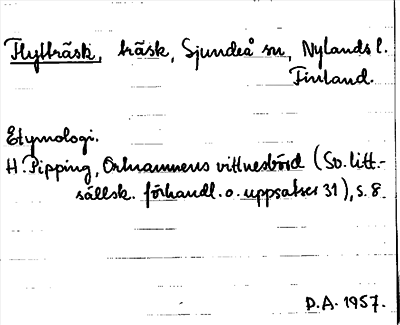 Flyträsk, träsk, Sjundeå sn, Nylands l.
Finland.
Etymologi.
H. Pipping, Ortnamnens vittnesbörd (Sv. litt.-
sällsk. förhandl. o. uppsatser 31), s. 8.
P.A. 1957.